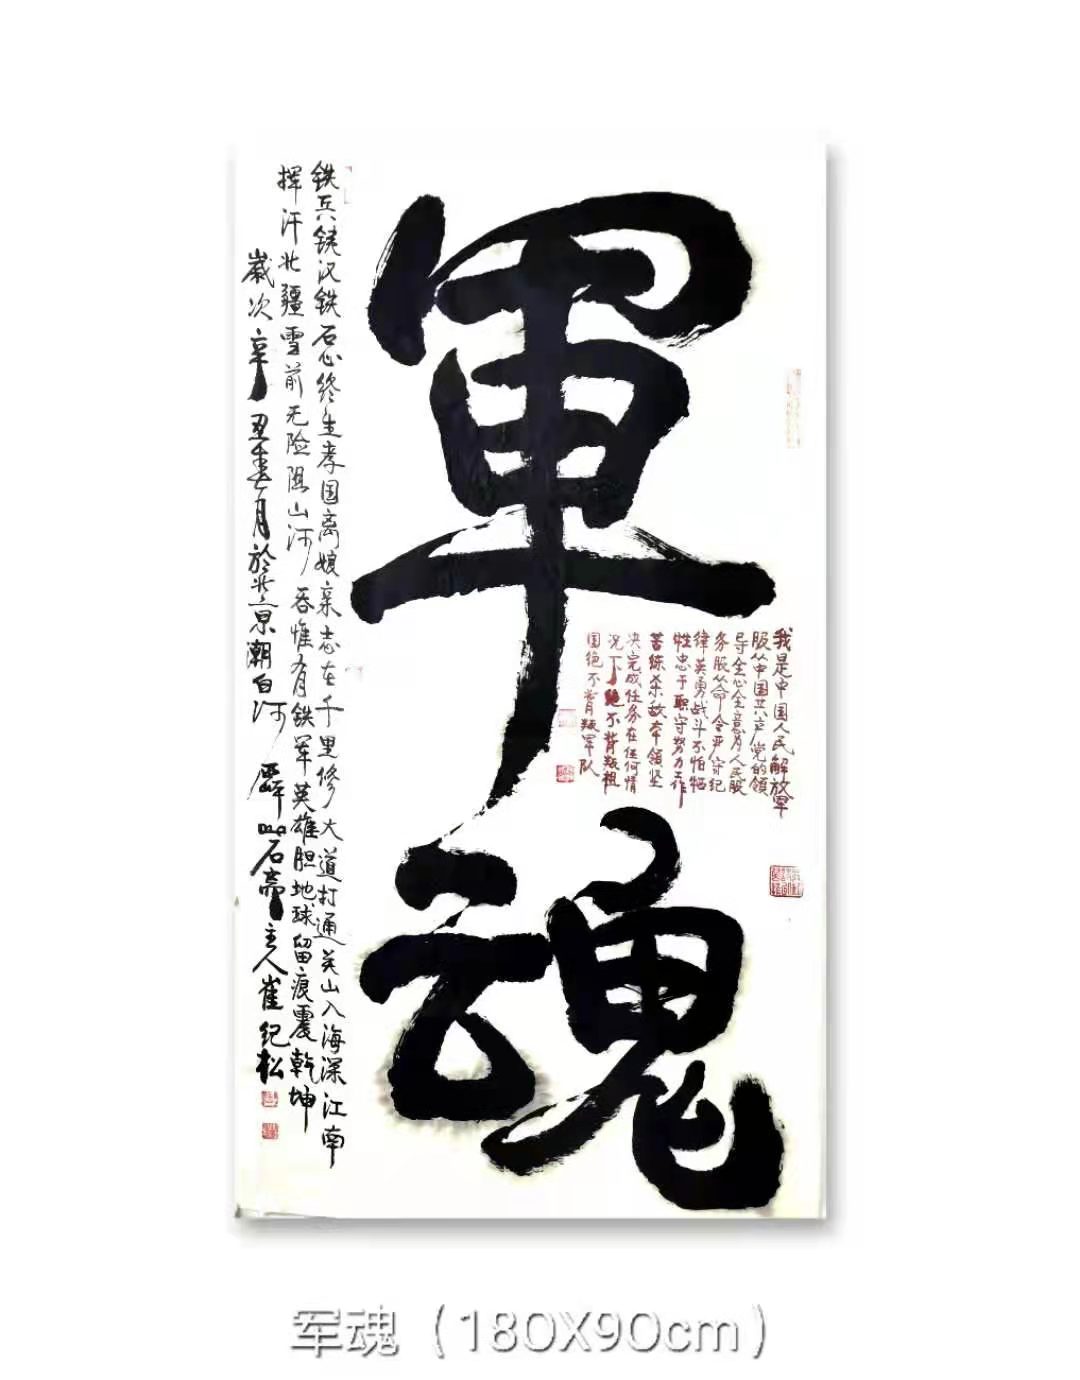 軍魂
我是中国人民解放军
服从中国共产党的领
导全心全意为人民服
务服从命令严守纪
律英勇战斗不怕牺
牲忠于职守努力工作
苦练杀敌本领坚
决完成任务在任何情
况下绝不背叛祖
国绝不背叛军队
铁兵铁汉铁石心终生孝国离娘亲志在千里修大道打通关山入海深江南
挥汗北疆雪前无险阻山河吞惟有铁军英雄胆地球留痕震乾坤
岁次辛丑春月於北京潮白河
石斋主人崔纪松
军魂（180X90cm）